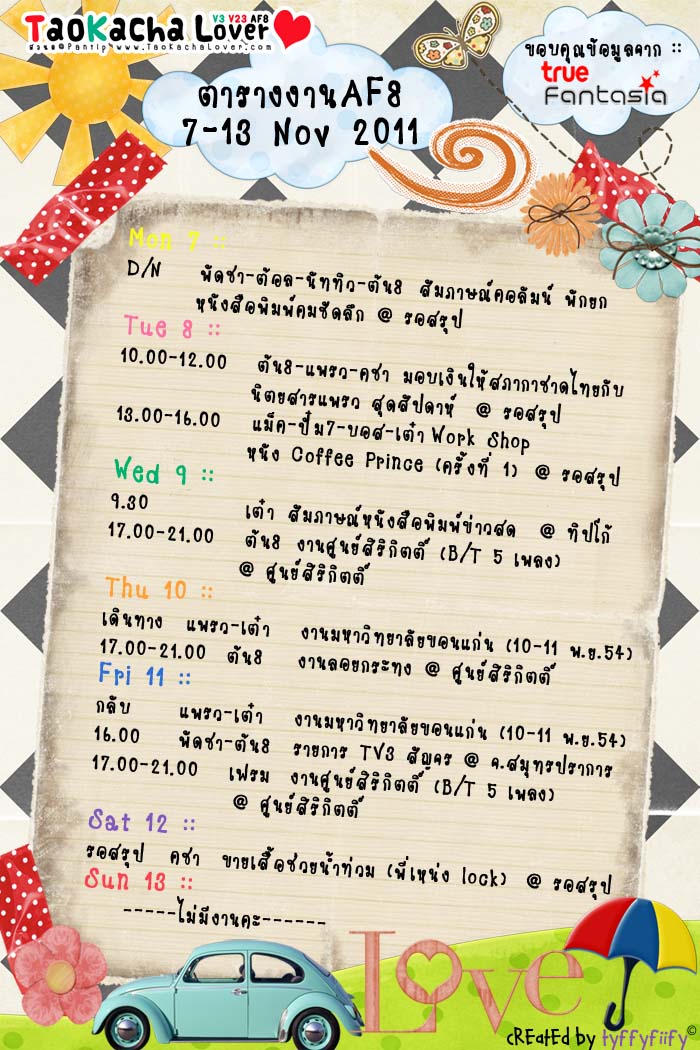 TaoKacha Lover
V3 V23 AF8
สวนเต๋@Pantip www.TaoKachaLover.com
ขอบคุณข้อมูลจาก ::
true
Fantasia
ตารางงานAF8
7-13 Nov 2011
Mon 7 ::
D/N พัดชา-ต้อล-นัททิว-ต้น8 สัมภาษณ์คอลัมน์ พักยก
หนังสือพิมพ์คมชัดลึก @ รอสรุป
Tue 8 ::
10.00-12.00 ต้น8-แพรว-คชา มอบเงินให้สภากาชาดไทยกับ
นิตยสารแพรว สุดสัปดาห์ @ รอสรุป
13.00-16.00 แม็ค-ปั้ม7-บอส-เต๋า Work Shop
หนัง Coffee Prince (ครั้งที่ 1) @ รอสรุป
Wed 9 ::
9.30 เต๋า สัมภาษณ์หนังสือพิมพ์ข่าวสด @ ทิปโก้
17.00-21.00 ต้น8 งานศูนย์สิริกิตติ์ (B/T 5 เพลง)
@ ศูนย์สิริกิตติ์
Thu 10 ::
เดินทาง แพรว-เต๋า งานมหาวิทยาลัยขอนแก่น (10-11 พ.ย.54)
17.00-21.00 ต้น8 งานลอยกระทง @ ศูนย์สิริกิตติ์
Fri 11 ::
กลับ แพรว-เต๋า งานมหาวิทยาลัยขอนแก่น (10-11 พ.ย.54)
16.00 พัดชา-ต้น8 รายการ TV3 สัญจร @ จ.สมุทรปราการ
17.00-21.00 เฟรม งานศูนย์สิริกิตติ์ (B/T 5 เพลง)
@ ศูนย์สิริกิตติ์
Sat 12 ::
รอสรุป คชา ขายเสื้อช่วยน้ำท่วม (พี่เหน่ง lock) @ รอสรุป
Sun 13 ::
-----ไม่มีงานคะ------
Love
cREatEd by tyffyfiify©